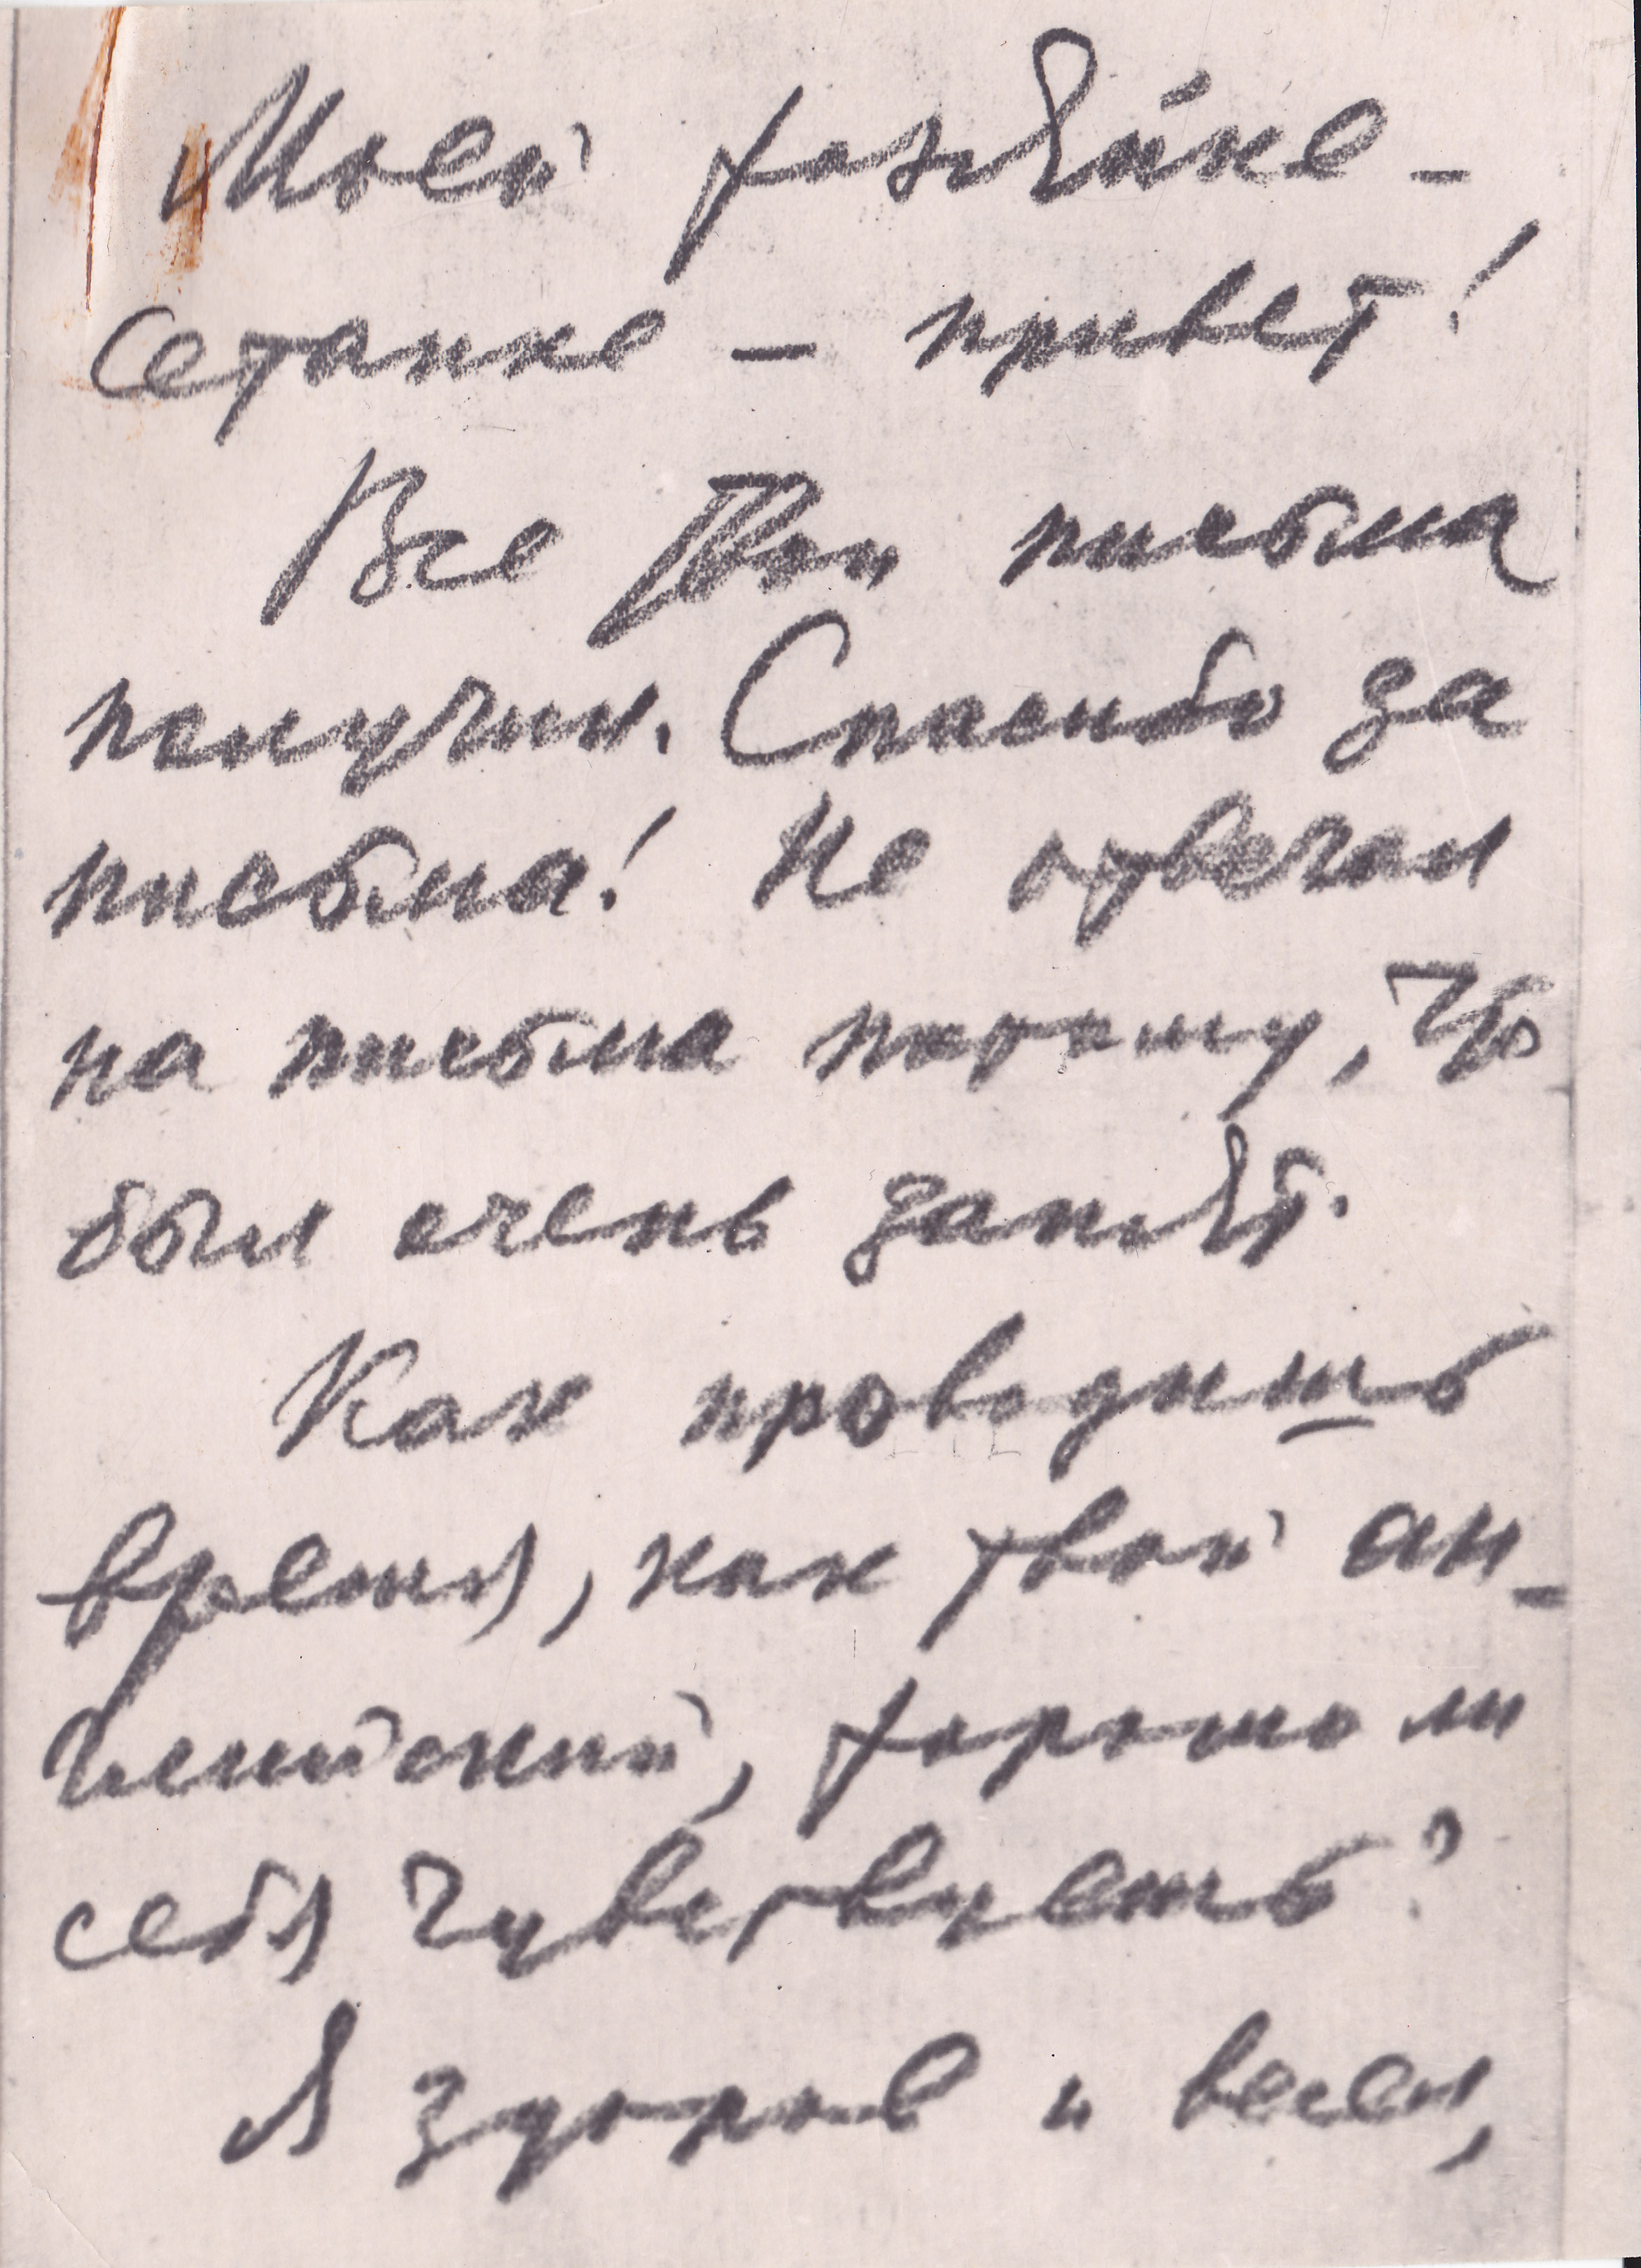 Моей хозяйке –
сетанке – привет!
Все твои письма
получил. Спасибо за
письма! Не отвечал
на письма потому, что
был очень занят.
Как проводишь
время, как твой ан-
глийский, хорошо ли
себя чувствуешь?
Я здоров и весел,